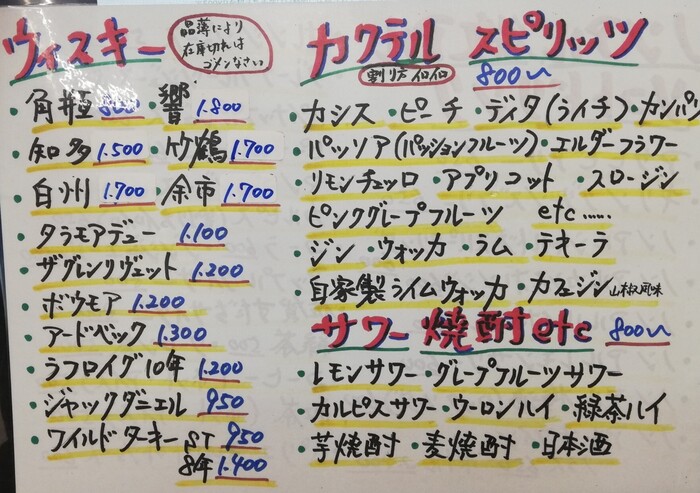 ウィスキー
品薄により
在庫切れは
ゴメンなさい
・角瓶 800 ・響 1.800
・知多 1.500 ・竹鶴 1.700
・白州 1.700 ・余市 1.700
・タラモアデュー 1.100
・ザグレンリヴェット 1.200
・ボウモア 1.200
・アードベック 1.300
・ラフロイグ10年 1.200
・ジャックダニエル 950
・ワイルドターキー ST 950
8年 1.400
カクテル スピリッツ
割り方色々 800〜
・カシス ・ピーチ ・ディタ(ライチ) ・カンパリ
・パッソア(パッションフルーツ) ・エルダーフラワー
・リモンチェッロ ・アプリコット ・スロージン
・ピンクグレープフルーツ etc.....
・ジン ・ウォッカ ・ラム ・テキーラ
・自家製ライムウォッカ ・カフェジン山椒風味
サワー 焼酎etc 800〜
・レモンサワー ・グレープフルーツサワー
・カルピスサワー ・ウーロンハイ ・緑茶ハイ
・芋焼酎 ・麦焼酎 ・日本酒